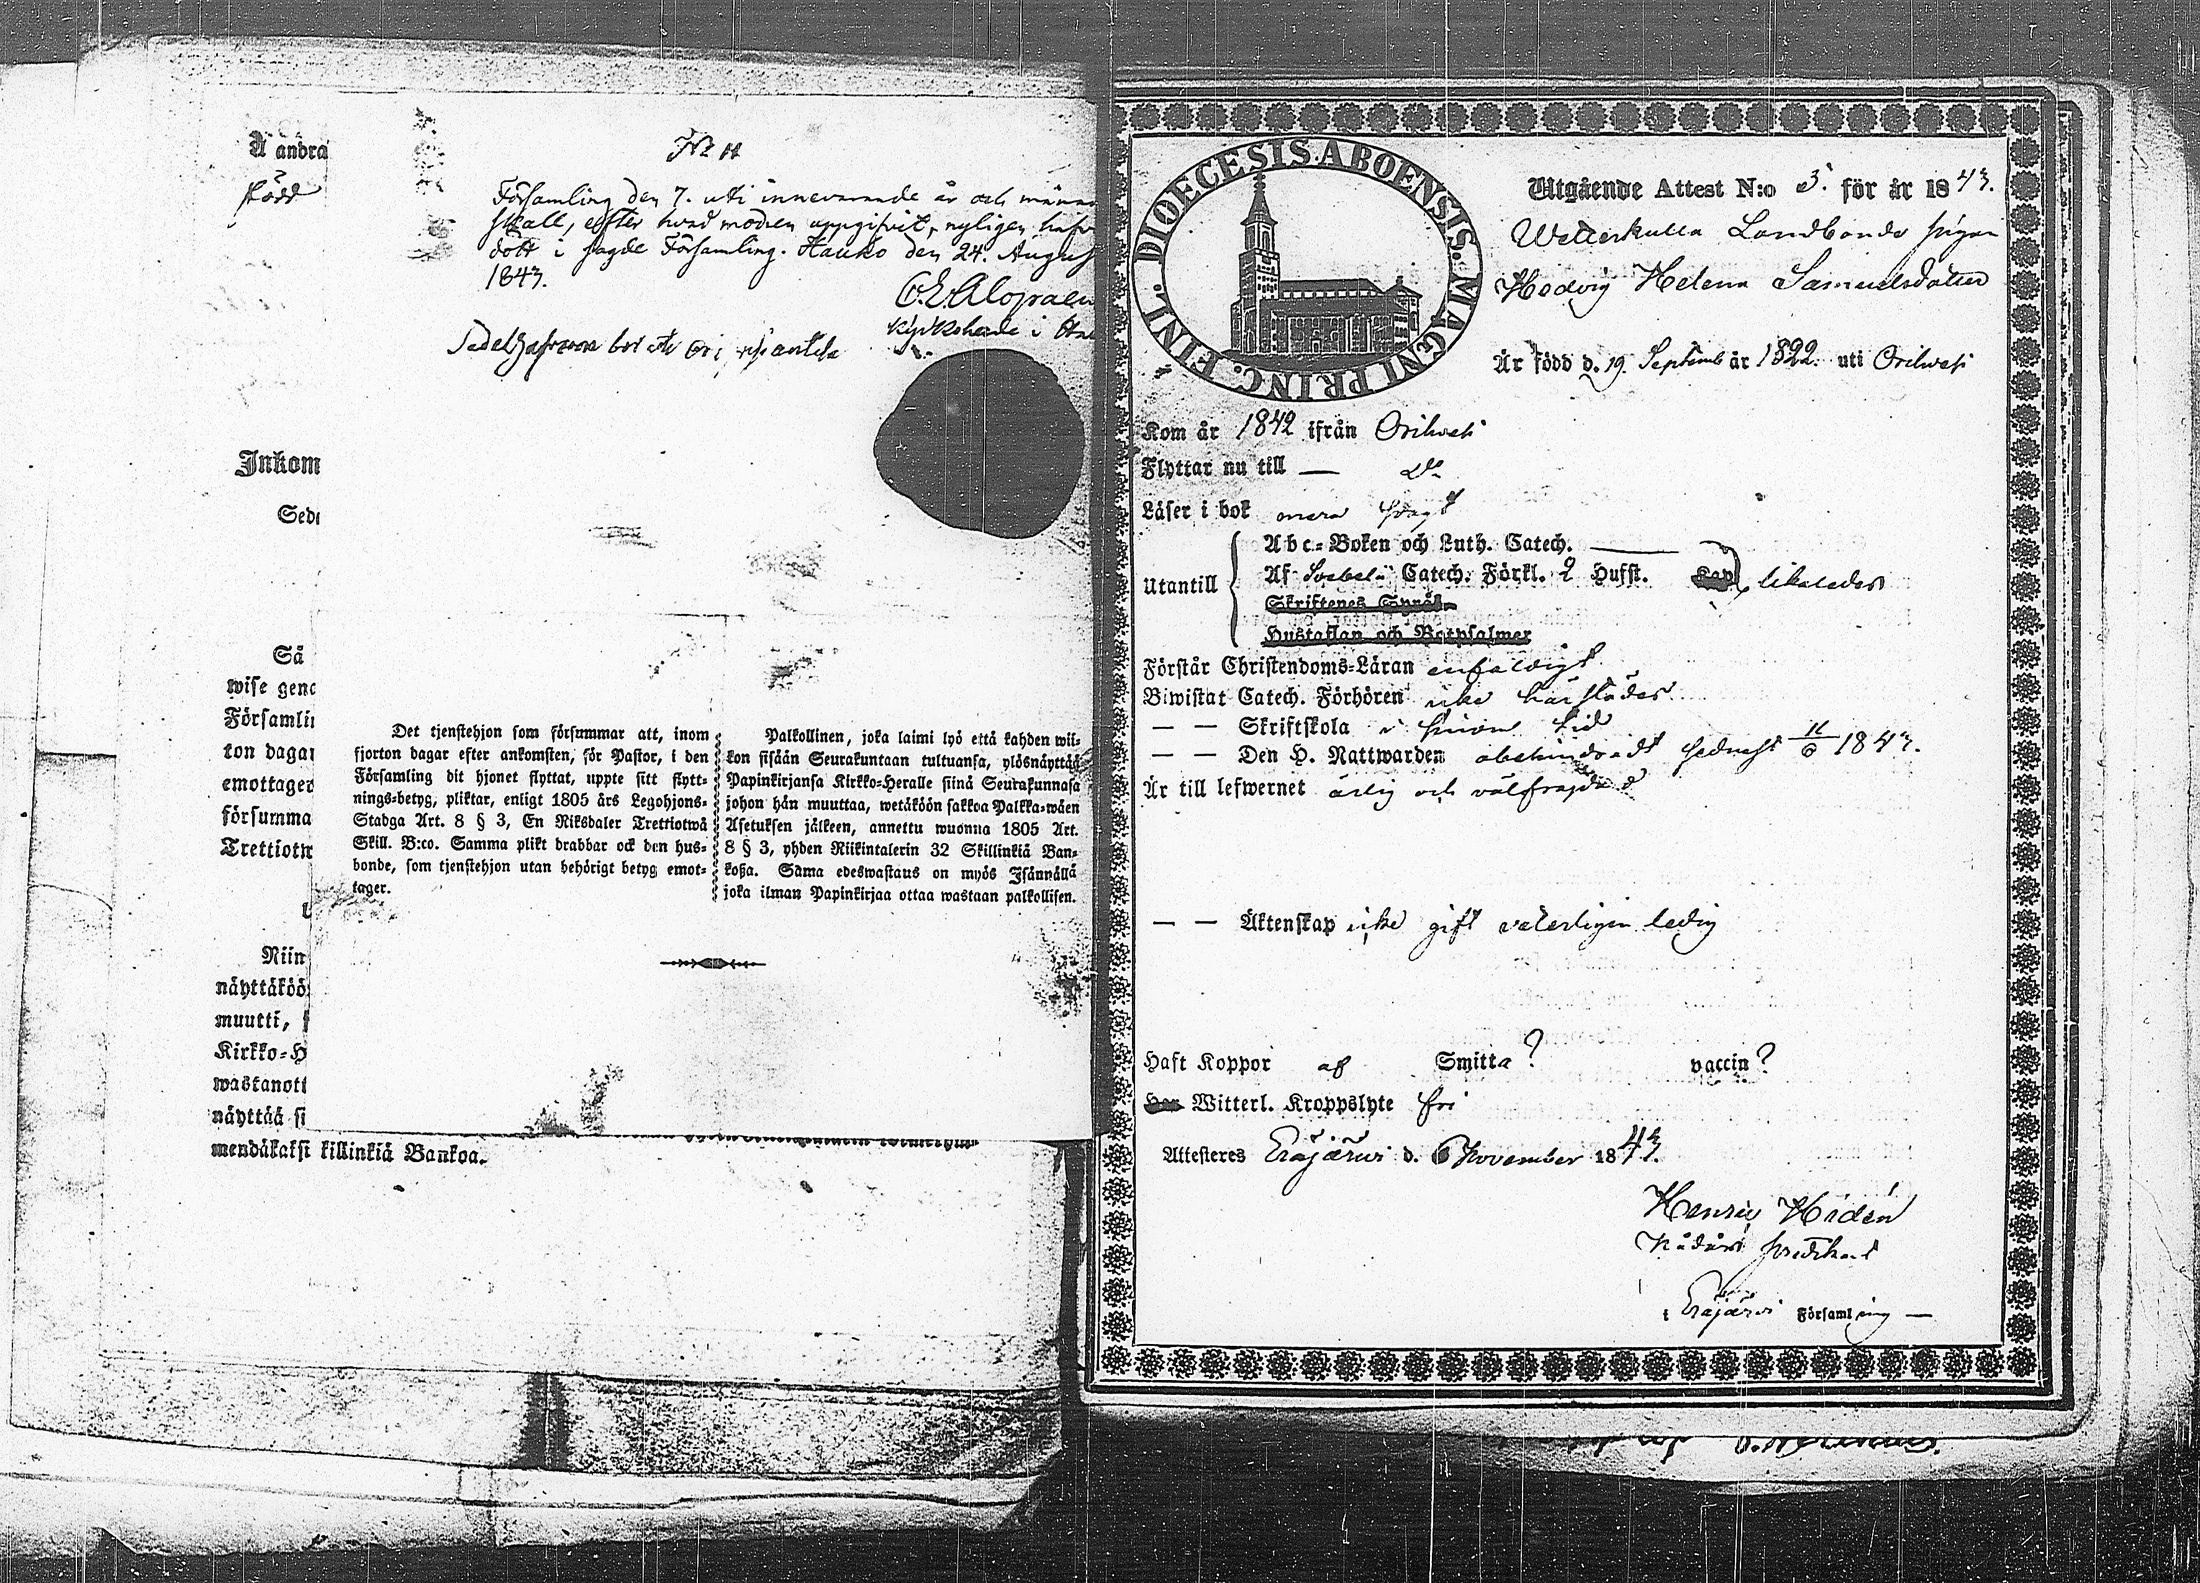 Å andra
född
Inkom
Sede
Så
wise geno
Församlin
ton dagar
emottager
försumma
Trettiotw
Niin
näyttäköö
muutti,
Kirkko-H
wastanott
näyttää si
mendäkaksi killinkiä Bankoa.
Församling den 7. uti innevarande år och månad
skall, efter hvad modren uppgifvit, nyligen hafva
dött i sagde Församling. Hauko den 24. August
1843.
Kyrkoherde i
Det tjenstehjon som försummar att, inom
fjorton dagar efter ankomsten, för Pastor, i den
Församling dit hjonet flyttat, uppte sitt flytt-
nings-betyg, pliktar, enligt 1805 års Legohjons-
Stadga Art. 8 § 3, En Riksdaler Trettiotwå
Skill. B:co. Samma plikt drabbar ock den hus-
bonde, som tjenstehjon utan behörigt betyg emot-
tager.
Palkollinen, joka laimi lyö että kahden wii-
kon sisään Seurakuntaan tultuansa, ylösnäyttää
Papinkirjansa Kirkko-Heralle siinä Seurakunnasa
johon hän muuttaa, wetäköön sakkoa Palkka-wäen
Asetuksen jälkeen, annettu wuonna 1805 Art.
8 § 3, yhden Riikintalerin 32 Skillinkiä Ban-
koßa. Sama edeswastaus on myös Isännällä
joka ilman Papinkirjaa ottaa wastaan palkollisen.
DIOECESIS ABOENSIS. MAGNI PRINC. FINL.
Utgående Attest N:o 5. för år 1843.
Wetterkulla Landbonde pigan
Hedvig Helena Samuelsdotter
Är född d. 19. Septemb år 1822. uti Orihvesi
Kom år 1842 ifrån Orihvesi
Flyttar nu till — Do
Läser i bok mera svagt
Utantill
Abc-Boken och Luth. Catech. —
Af Svebelii Catech. Förkl. 2 Hufst. Kap. likaledes
Skriftenes Språk
Hustaflan och Botpsalmer
Förstår Christendoms-Läran enfaldigt
Biwistat Catech. Förhören icke härstädes
— — Skriftskola i sinom tid
— — Den H. Nattwarden obehindradt sednast 11/6 1843.
Är till lefwernet ärlig och välfrejdad
— — Äktenskap icke gift veterligen ledig
Haft Koppor af Smitta? vaccin?
Har Witterl. Kroppslyte fri
Attesteres Eräjärvi d. 6 November 1843.
Henric Hidén
predikant
i Eräjärvi Församling —